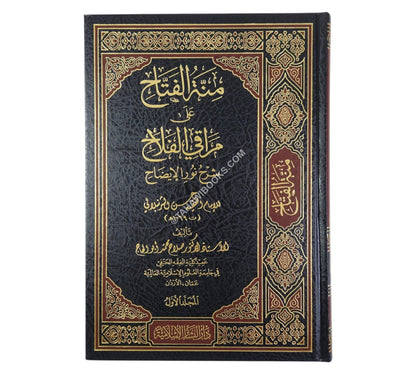 منة الفتاح
على
مراقي الفلاح
شرح نور الإيضاح
للإمام الحسن الشرنبلالي
(ت ١٠٦٩ هـ)
تأليف
الأستاذ الدكتور صلاح محمد أبو الحاج
عميد كلية الفقه الحنفي
في جامعة العلوم الإسلامية العالمية
عمان - الأردن
المجلد الأول
منة الفتاح